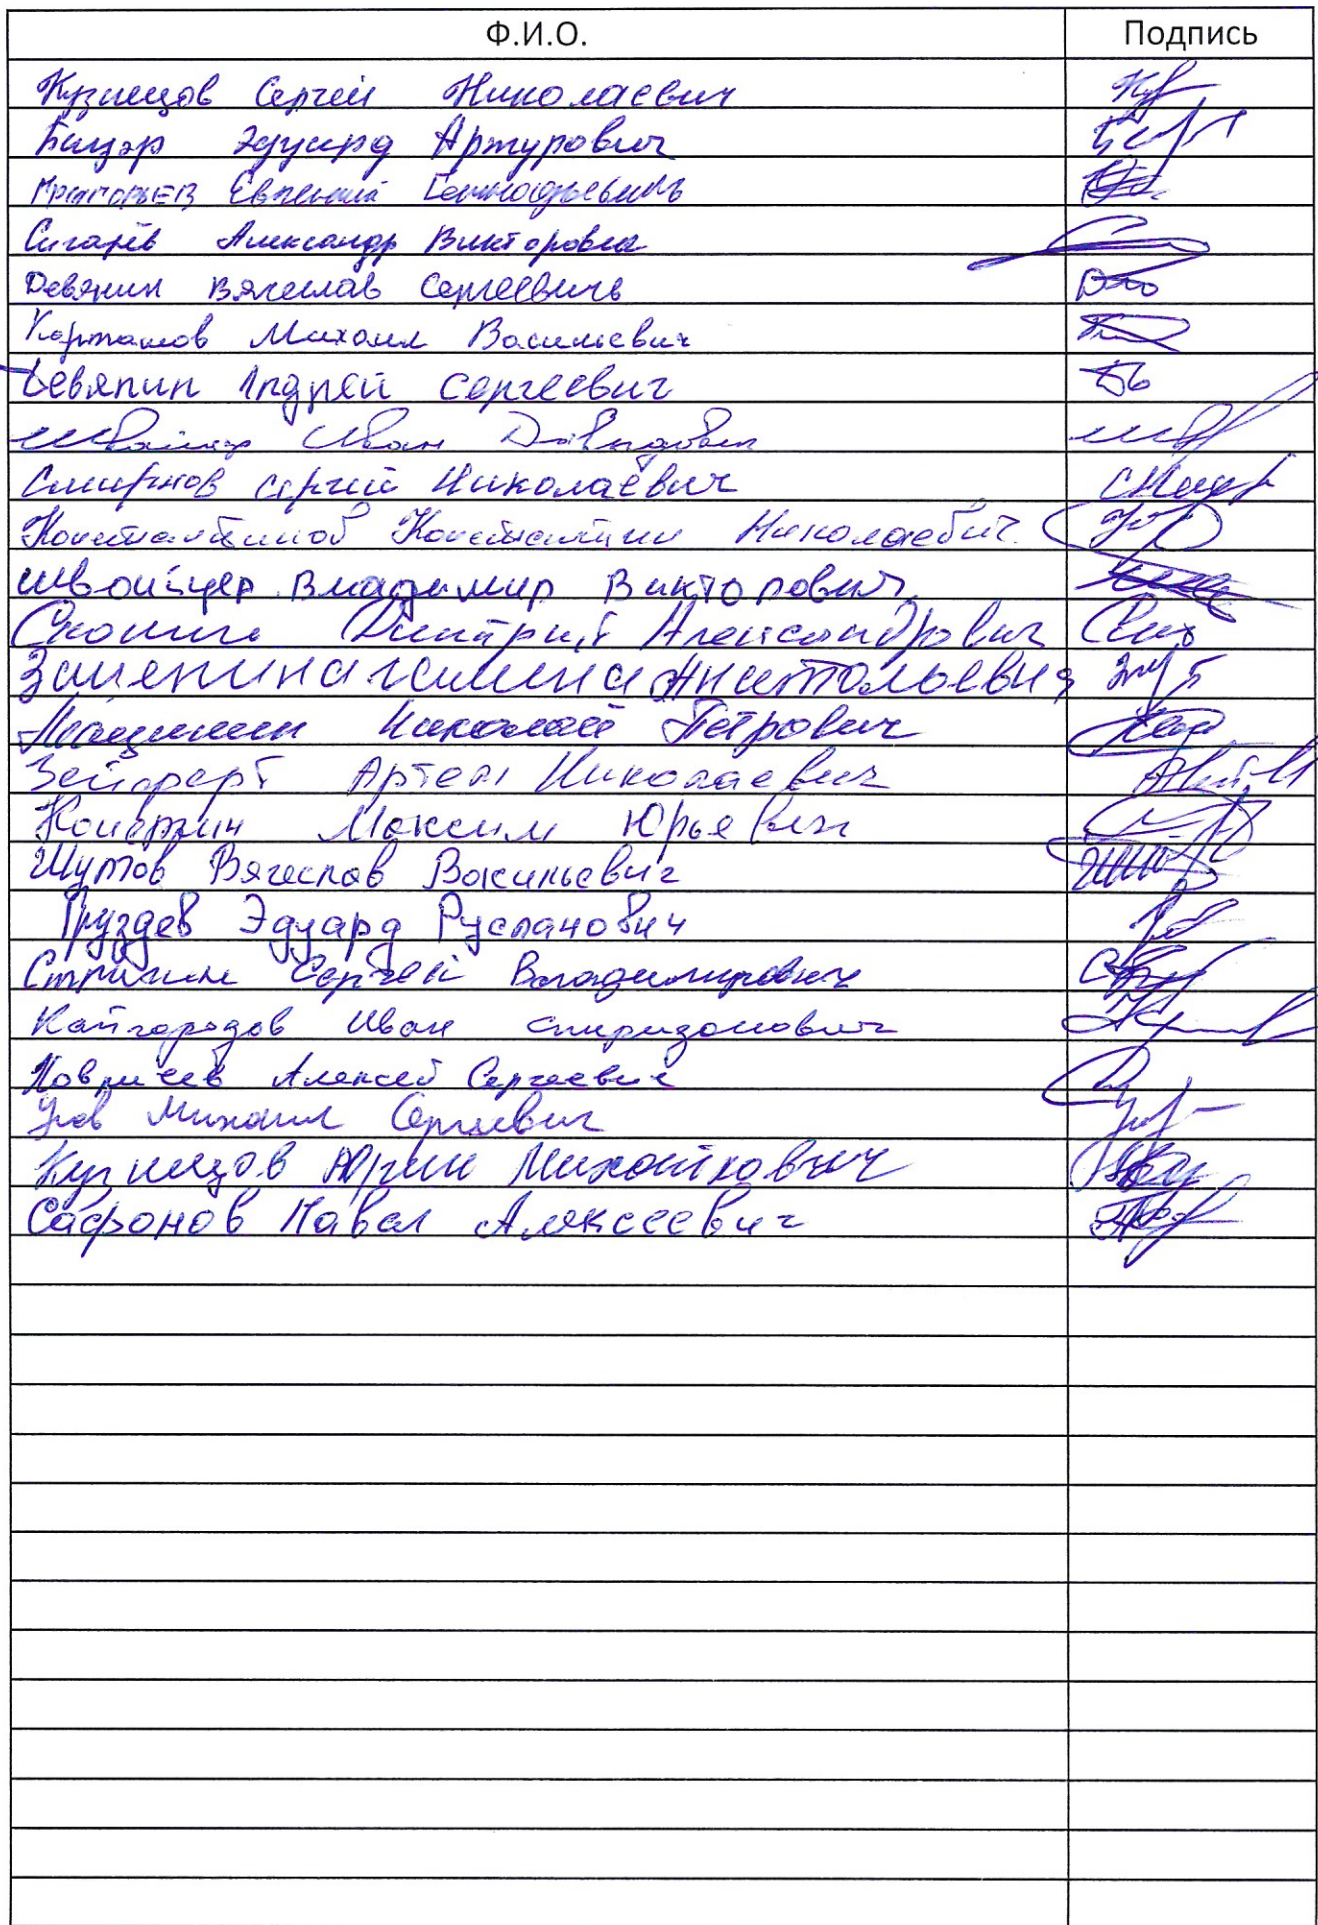 Ф.И.О. Подпись
Кузнецов Сергей Николаевич
Бауэр Эдуард Артурович
Григорьев Евгений Геннадьевичь
Сигарёв Александр Викторович
Девянин Вячеслав Сергеевичь
Карташов Михаил Васильевич
Девянин Андрей Сергеевич
Иван Давыдович
Смирнов Сергей Николаевич
Константинов Константин Николаевич
Швойцер Владимир Викторович
Дмитрий Александрович
Анатольевна
Николай Петрович
Зейферт Артём Николаевич
Максим Юрьевич
Шутов Вячеслав Васильевич
Груздев Эдуард Русланович
Сергей Владимирович
Кайгородов Иван Спиридонович
Алексей Сергеевич
Михаил Сергеевич
Кузнецов
Сафонов Павел Алексеевич